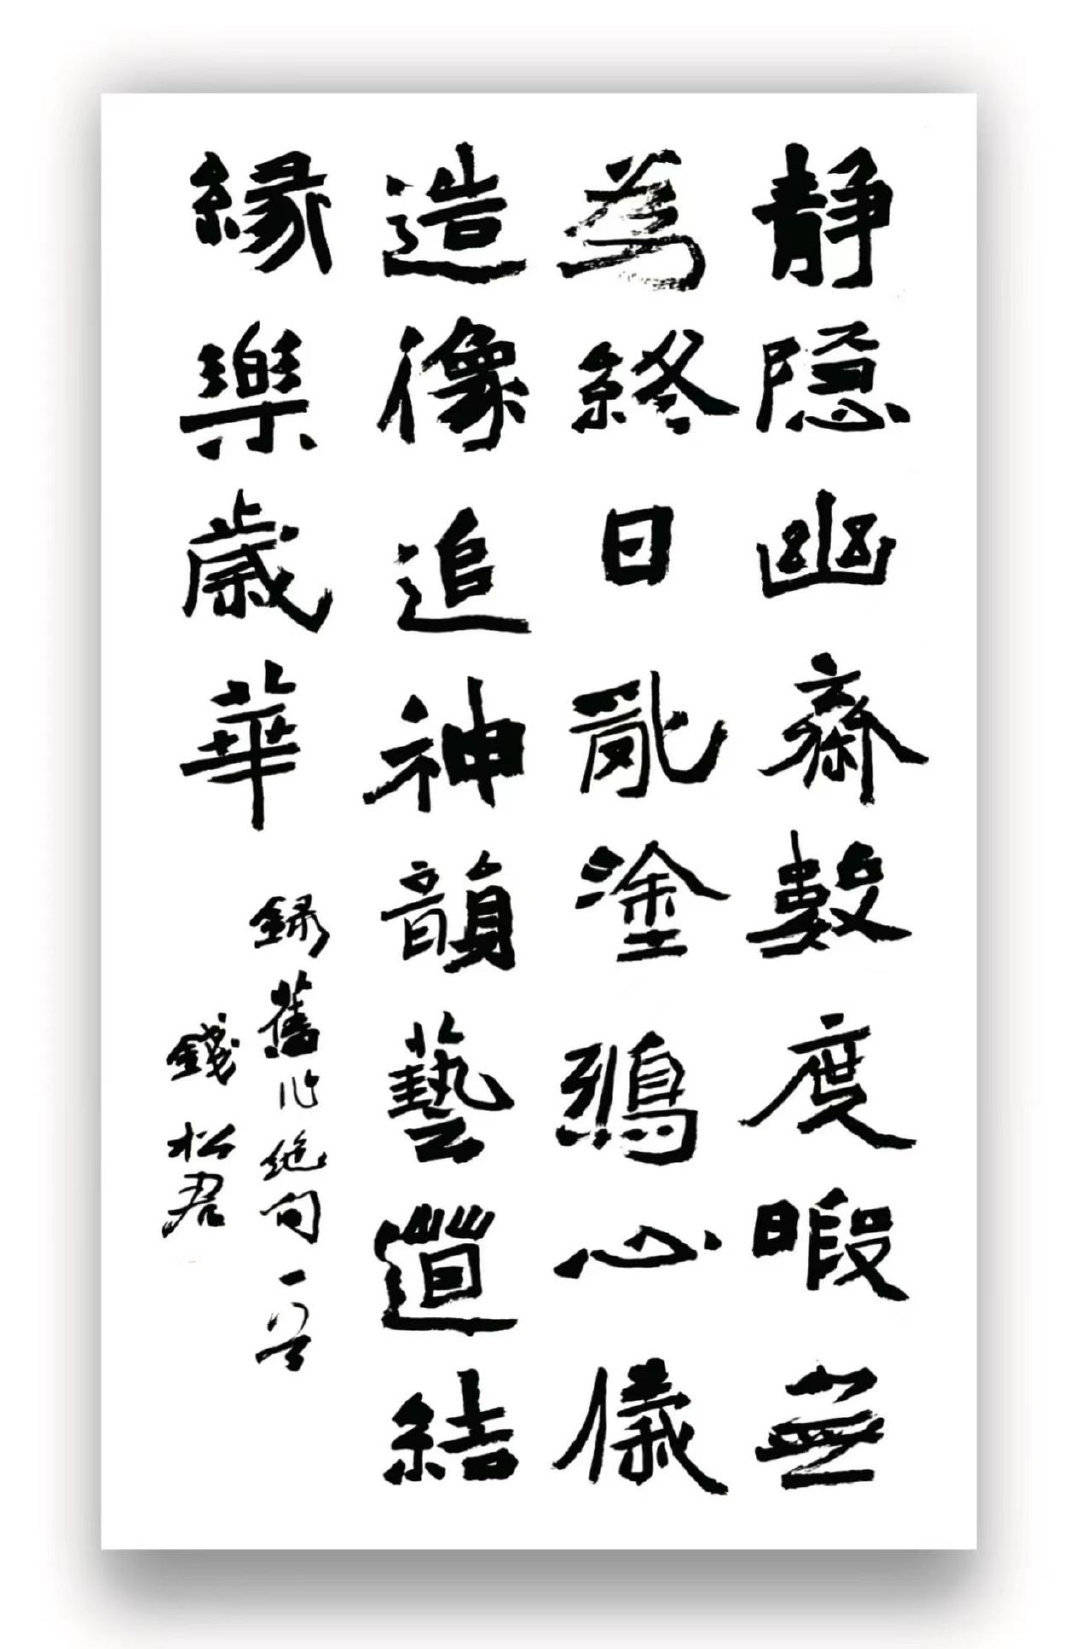 静隐幽齋數度暇無
為終日亂塗鴉心儀
造像追神韻藝道結
緣樂歲華
錄舊作絕句一首
錢松君